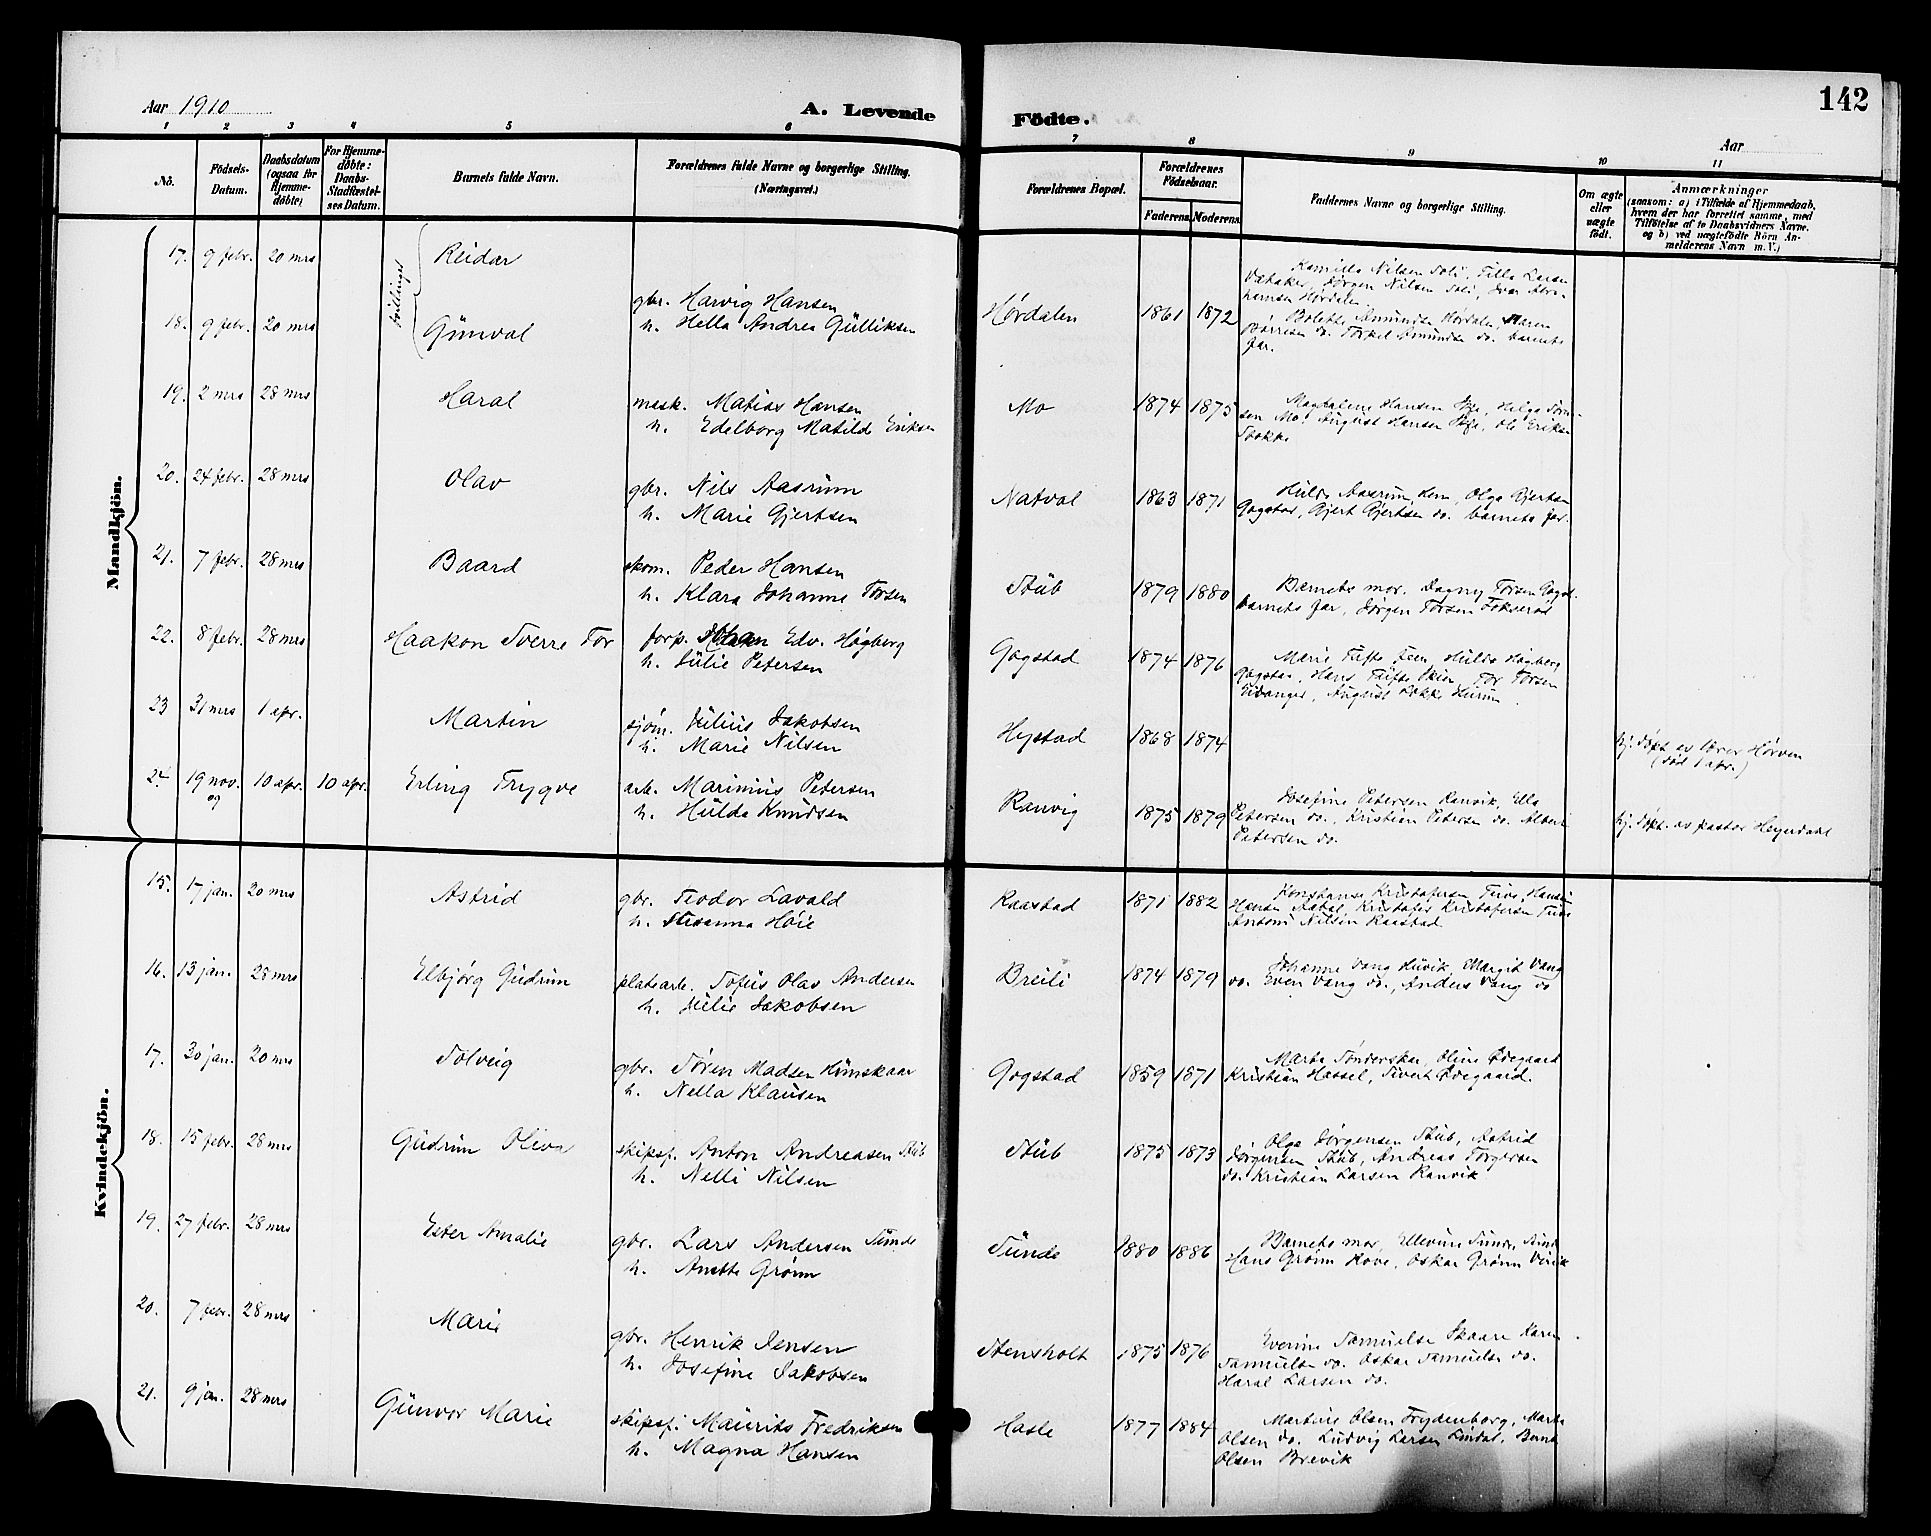 142
Aar 1910
A. Levende Födte.
Aar
1 2 3 4 5 6 7 8 9 10 11
Nö.
Födsels-Datum.
Daabsdatum (ogsaa for Hjemme-döbte)
For Hjemme-döbte: Daabs-Stadfæstel-ses Datum.
Barnets fulde Navn.
Forældrenes fulde Navne og borgerlige Stilling. (Næringsvei.)
Forældrenes Bopæl.
Forældrenes Födselsaar.
Faderens. Moderens.
Faddernes Navne og borgerlige Stilling.
Om ægte eller uægte født.
Anmærkninger
(saasom: a) i Tilfælde af Hjemmedaab,
hvem der har forrettet samme, med
Tilföielse af to Daabsvidners Navne.
og b) ved uægtefödte Börn An-
melderens Navn m. V.)
Mandkjön.
17. 9 febr. 20 mrs Reidar
tvillinger
gbr. Harvig Hansen
h. Hella Andrea Gulliksen
Hørdalen 1861 1872
Kamilla Nilsen Soli, Tilla Larsen
Vataker, Jørgen Nilsen Soli, Ivar Abra-
hamsen Hørdalen.
18. 9 febr. 20 mrs Gunval
Bolette Amundsen Hørdalen, Maren
Børresen do. Torkel Amundsen do. barnets
far.
19. 2 mrs 28 mrs Haral
mask. Matias Hansen
h. Edelborg Matilde Eriksen
Mo 1874 1875
Magdalene Hansen, Helga
sen Mo, August Hansen, Ole Eriksen
Stokke
20. 24 febr. 28 mrs Olav
gbr. Nils Aasrum
h. Marie Gjertsen
Natval 1863 1871
Hulda Aasrum, Hem, Olga Gjertsen
Gogstad, Gjert Gjertsen do. barnets far.
21. 7 febr. 28 mrs Baard
skom. Peder Hansen
h. Klara Johanne Torsen
Stub 1879 1880
Barnets mor. Dagny Torsen Gogst.
barnets far, Jørgen Torsen Fokserød
22. 8 febr. 28 mrs Haakon Sverre Tor
forp. Johan Edv. Høgberg
h. Julie Petersen
Gogstad 1874 1876
Marie Tufte Feen, Hulda Høgberg
Gogstad, Hans Tufte Skien, Tor Torsen
Eidanger, August Løkke Hurum.
23 31 mrs 1 apr. Martin
sjøm. Julius Jakobsen
h. Marie Nilsen
Hystad 1868 1874
hj. døpt av Iver Hørven
(død 1 apr.)
24. 19 nov. 09 10 apr. 10 apr. Erling Trygve
arb. Marinius Petersen
h. Hulda Knudsen
Ranvig 1875 1879
Josefine Petersen Ranvik, Ella
Petersen do., Kristian Petersen do. Albert
Petersen do.
hj. døpt. av pastor Heyerdahl
Kvindekjön.
15. 17 jan. 20 mrs Astrid
gbr. Teodor Lavold
h. Susanna Høie
Raastad 1871 1882
Konstanse Kristofersen Furs, Hansine
Hansen, Kristofer Kristofersen Furs
Antoni Nilsen Raastad
16. 13 jan. 28 mrs Elbjørg Gudrun
platearb. Sofus Olav Andersen
h. Julie Jakobsen
Breili 1874 1879
Johanne Vang Huvik, Margit Vang
do. Even Vang do., Anders Vang do
17. 30 jan. 20 mrs Solveig
gbr. Søren Madsen Humskaar
h. Nella Klausen
Gogstad 1859 1871
Marta Sønderskar, Oline Ødegaard
Kristian Hassel, Sivert Ødegaard.
18. 15 febr. 28 mrs Gudrun Oliva
skipsf. Anton Andreasen Stub
h. Nelli Nilsen
Stub 1875 1873
Olga Jørgensen Stub, Astrid
Jørgensen Stub, Andreas Torgersen
do. Kristian Larsen Ranvik
19. 27 febr. 28 mrs Ester Amalie
gbr. Lars Andersen Sunde
h. Anette Grønn
Sunde 1880 1886
Barnets mor, Ellevine Sunde, Sunde
Hans Grønn Hove, Oskar Grønn Virik
20. 7 febr. 28 mrs Marie
gbr. Henrik Jensen
h. Josefine Jakobsen
Stensholt 1875 1876
Everine Samuelse Skaare Karen
Samuelse do. Oskar Samuelse do.
Haral Larsen do.
21. 9 jan. 28 mrs Gunvor Marie
skipsf. Maurits Fredriksen
h. Magna Hansen
Hasle 1877 1884
Martine Olsen Frydenborg, Marta
Olsen do. Ludvig Larsen Lindal, Bernt
Olsen Brevik